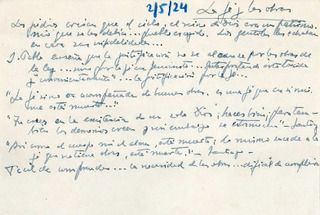 2/5/24 La fé y las obras
Los judíos creían que el cielo, el reino de Dios era un patrimonio
para que se los debía... pueblo escogido. Los gentiles
en caso sus
S. Pablo enseña que la justificación no se alcanza por las obras de
la Ley... sino por la fe en Jesucristo.
la justificación por la fe...
"La fé si no es acompañada de buenas obras, es una fé que en sí mis-
ma está muerta"
"Tu crees en la existencia de un solo Dios; haces bien; pero tam-
bién los demonios creen y sin embargo se estremecen" - Santiago
"Así como el cuerpo sin el alma, está muerto; lo mismo sucede a la
fé que no tiene obras, está muerta" - Santiago -
Fácil de comprender... la necesidad de las obras... difícil de cumplirla